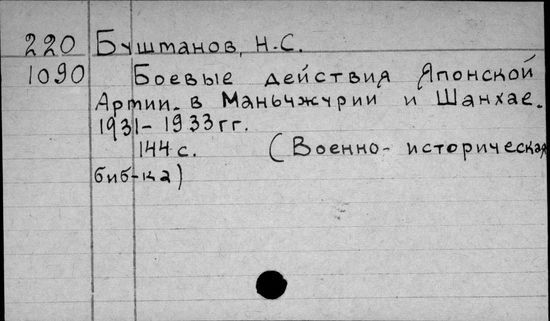 220 Буштанов, Н.С.
1090 Боевые действия Японской
Артии. в Маньчжурии и Шанхае.
1931-1933 гг.
144 с. (Военно- историческая
биб-ка)